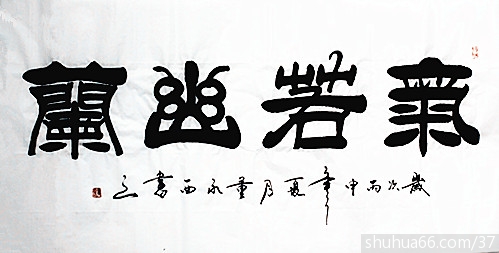 氣若幽蘭
歲次丙申年夏月董永西書之
shuhua66.com/37